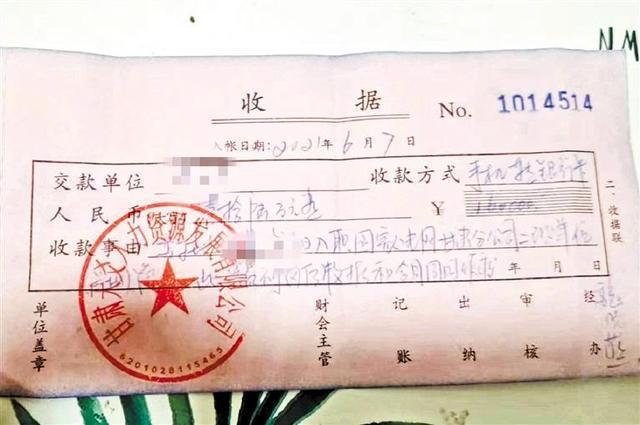 收据
No. 1014514
入帐日期:2021年6月7日
交款单位 收款方式 手机转银行卡
人民币 壹拾陆万元整 ¥ 160000
收款事由 入职国家电网甘肃分公司二级单位
年 月 日
单位盖章 财会主管 记账 出纳 审核 经办
二、收据联
甘肃 人力资源发展有限公司
6201028115465
NM